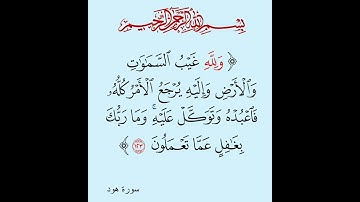 بِسْمِ ٱللَّهِ ٱلرَّحْمَٰنِ ٱلرَّحِيمِ
﴿ وَلِلَّهِ غَيْبُ ٱلسَّمَٰوَٰتِ
وَٱلْأَرْضِ وَإِلَيْهِ يُرْجَعُ ٱلْأَمْرُ كُلُّهُۥ
فَٱعْبُدْهُ وَتَوَكَّلْ عَلَيْهِ ۚ وَمَا رَبُّكَ
بِغَٰفِلٍ عَمَّا تَعْمَلُونَ ١٢٣ ﴾
سورة هود